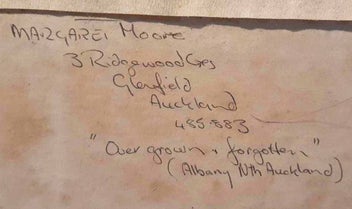 MARGARET Moore
3 Ridgewood Cres
Glenfield
Auckland
485.883
"Over grown & forgotten"
(Albany Nth Auckland)